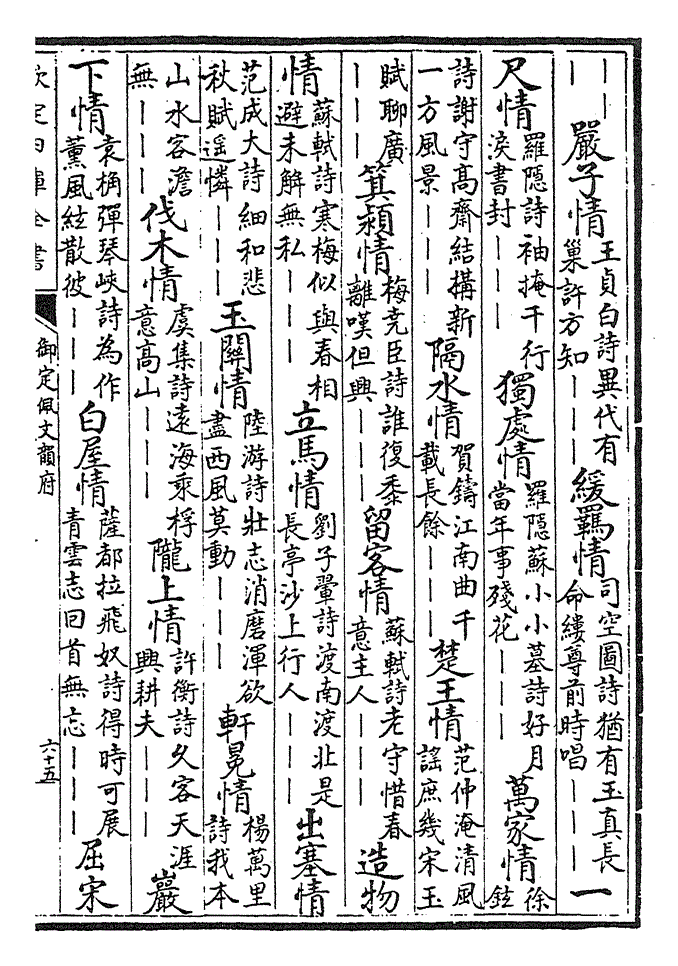 ｜｜｜｜嚴子情王貞白詩異代有巢許方知｜｜｜緩羈情司空圖詩猶有玉真長命縷尊前時唱｜｜｜一
尺情羅隱詩袖掩千行淚書封｜｜｜獨處情羅隱蘇小小墓詩好月當年事殘花｜｜｜萬家情徐鉉
詩謝守髙齋結構新一方風景｜｜｜隔水情賀鑄江南曲千載長餘｜｜｜楚王情范仲淹清風謡庶幾宋玉
賦聊廣｜｜｜箕潁情梅堯臣詩誰復黍離嘆但興｜｜｜留客情蘇軾詩老守惜春意主人｜｜｜造物
情蘇軾詩寒梅似與春相避未解無私｜｜｜立馬情劉子翬詩渡南渡北是長亭沙上行人｜｜｜出塞情
范成大詩細和悲秋賦遥憐｜｜｜玉關情陸游詩壯志消磨渾欲盡西風莫動｜｜｜軒冕情楊萬里詩我本
山水客澹無｜｜｜伐木情虞集詩遠海乘桴意髙山｜｜｜隴上情許衡詩久客天涯興耕夫｜｜｜巖
下情袁桷彈琴峽詩為作薫風絃散彼｜｜｜白屋情薩都拉飛奴詩得時可展青雲志回首無忘｜｜｜屈宋
欽定四庫全書
御定佩文韻府
六十五